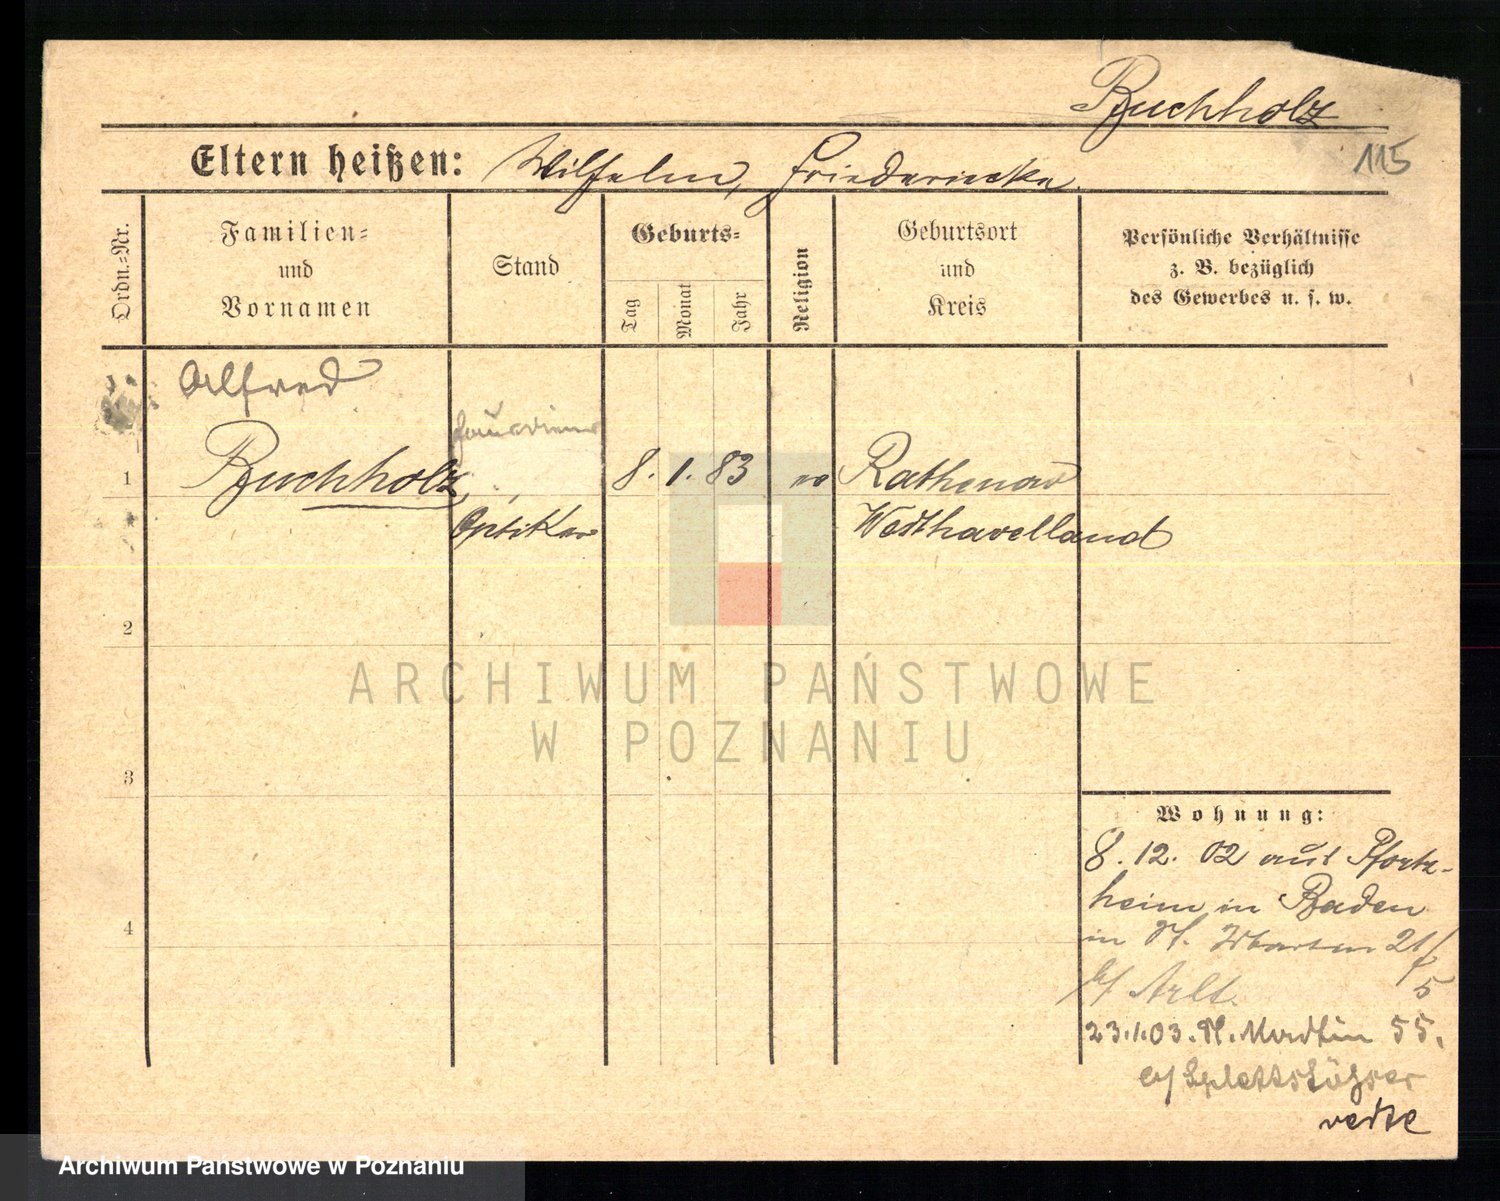 Buchholz
115
Eltern heißen: Wilhelm, Friederiecke.
Ordn.-Nr.
Familien-
und
Vornamen
Stand
Geburts-
Tag
Monat
Jahr
Religion
Geburtsort
und
Kreis
Persönliche Verhältnisse
z. B. bezüglich
des Gewerbes u. s. w.
Alfred
1 Buchholz 8. 1. 83 ev Rathenow
Optiker Westhavelland
2
3
4
ARCHIWUM PAŃSTWOWE
W POZNANIU
Wohnung:
8. 12. 02 aus Pforz-
heim in Baden
in St. Martin 21/
b/ Arlt. 5
23.1.03. St. Martin 55.
b/ Splettstößer
Archiwum Państwowe w Poznaniu